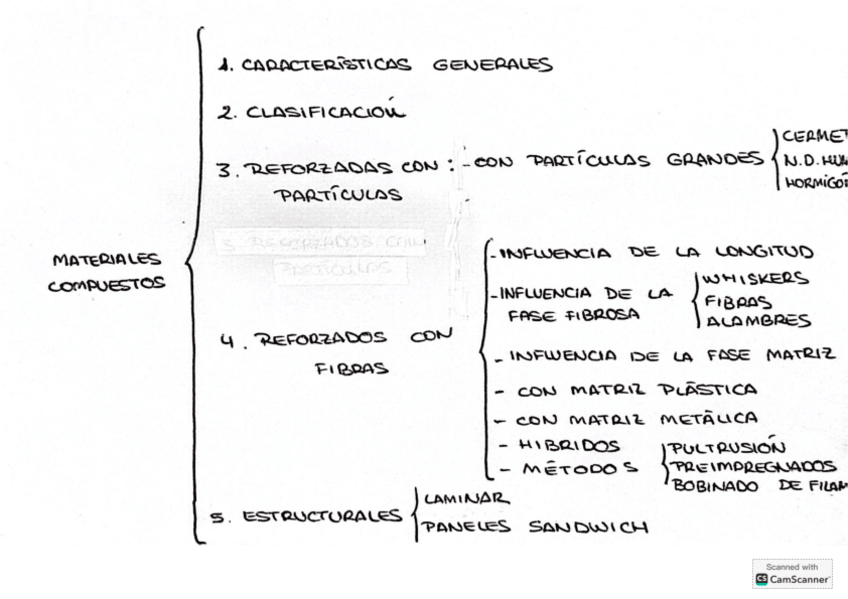 1. CARACTERÍSTICAS GENERALES
2. CLASIFICACIÓN
3. REFORZADAS CON : - CON PARTÍCULAS GRANDES
PARTÍCULAS
CERMET
N.D. HU
HORMIGÓ
3 REFORZADOS CON
PARTÍCULAS
MATERIALES
COMPUESTOS
4. REFORZADOS CON
FIBRAS
- INFLUENCIA DE LA LONGITUD
- INFLUENCIA DE LA
FASE FIBROSA
WHISKERS
FIBRAS
ALAMBRES
- INFLUENCIA DE LA FASE MATRIZ
- CON MATRIZ PLÁSTICA
- CON MATRIZ METÁLICA
- HIBRIDOS
- MÉTODOS
PULTRUSIÓN
PREIMPREGNADOS
BOBINADO DE FILAM
5. ESTRUCTURALES
LAMINAR
PANELES SANDWICH
Scanned with
CS CamScanner